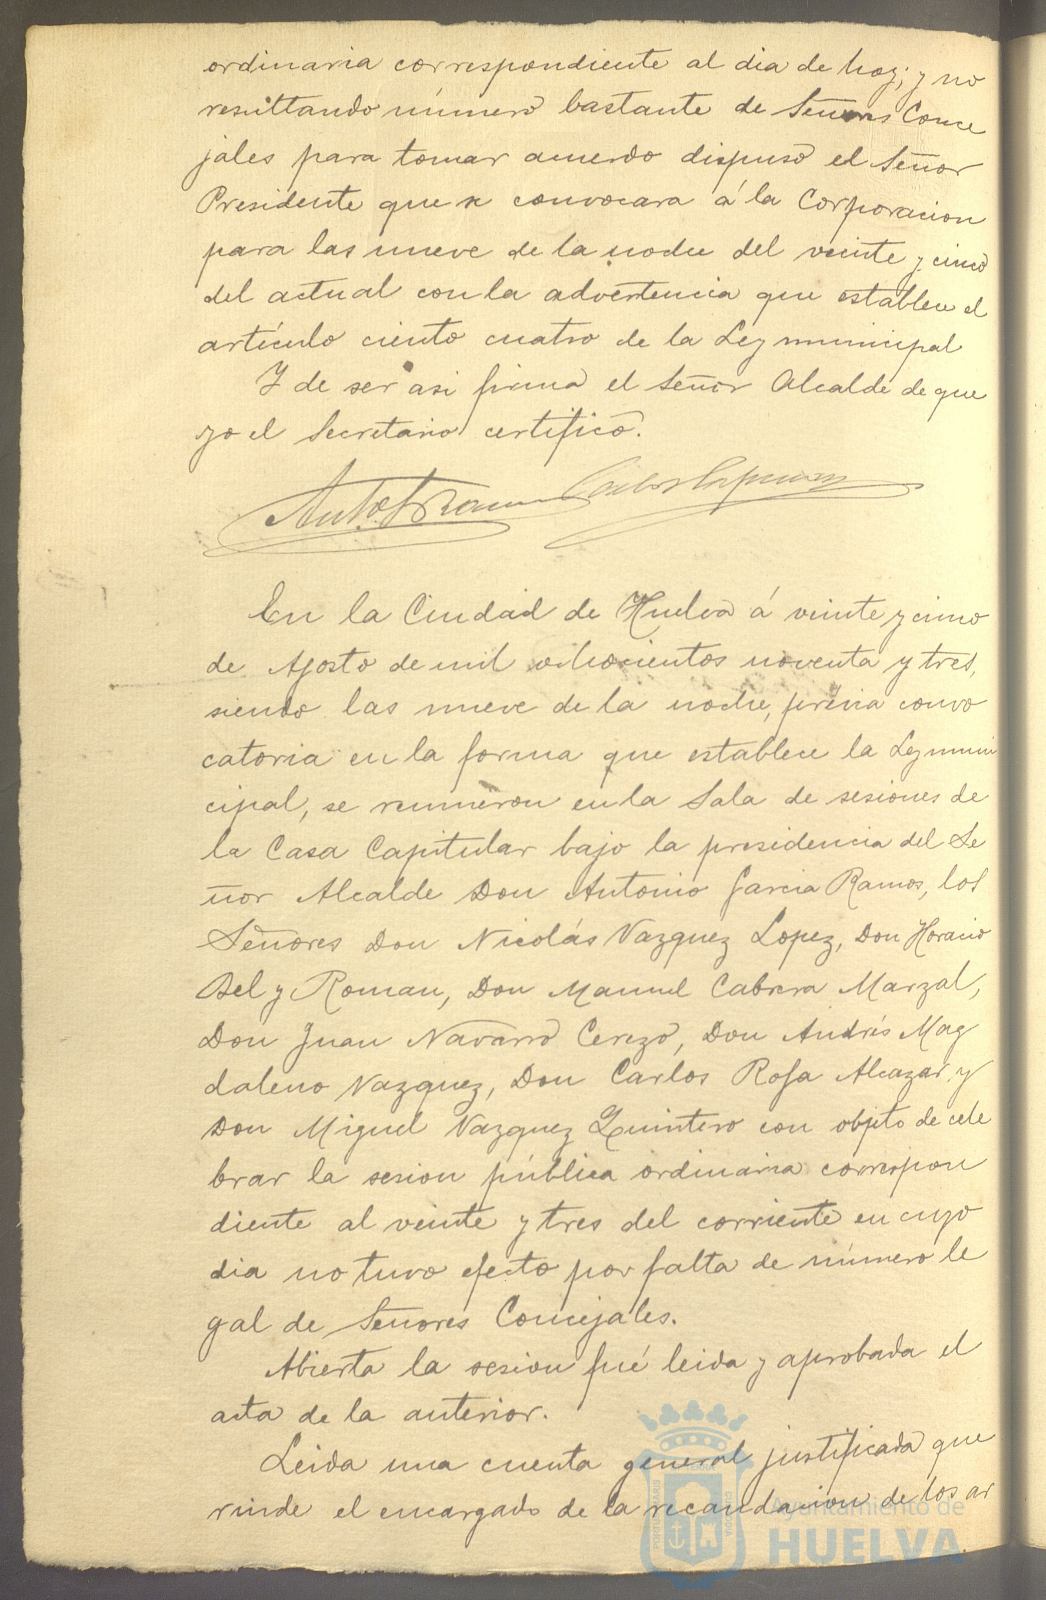 ordinaria correspondiente al dia de hoy; y no
resultando número bastante de Señores Conce
jales para tomar acuerdo dispuso el Señor
Presidente que se convocara á la Corporacion
para las nueve de la noche del veinte y cinco
del actual con la advertencia que establece el
artículo ciento cuatro de la Ley municipal
Y de ser asi firma el Señor Alcalde de que
yo el Secretario certifico.
En la Ciudad de Huelva á veinte y cinco
de Agosto de mil ochocientos noventa y tres,
siendo las nueve de la noche, prévia convo
catoria en la forma que establece la Ley muni
cipal, se reunieron en la Sala de sesiones de
la Casa Capitular bajo la presidencia del Se
ñor Alcalde Don Antonio Garcia Ramos, los
Señores Don Nicolás Vazquez Lopez, Don Horacio
Bel y Roman, Don Manuel Cabrera Marzal,
Don Juan Navarro Cerezo, Don Andrés Mag
daleno Vazquez, Don Carlos Rofa Alcazar y
Don Miguel Vazquez Quintero con objeto de cele
brar la sesion pública ordinaria correspon
diente al veinte y tres del corriente en cuyo
dia no tuvo efecto por falta de número le
gal de Señores Concejales.
Abierta la sesion fué leida y aprobada el
acta de la anterior.
Leida una cuenta general justificada que
rinde el encargado de la recaudacion de los ar
Ayuntamiento de
HUELVA